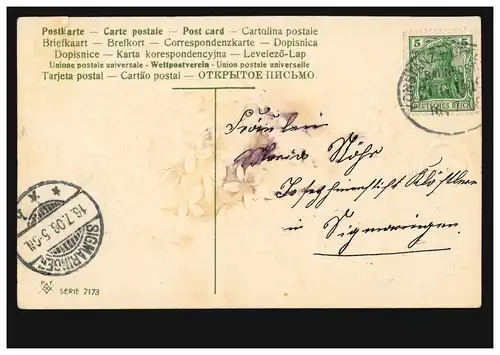 Postkarte — Carte postale — Post card — Cartolina postale
Briefkaart — Brefkort — Correspondenzkarte — Dopisnica
Dopisnice — Karta korespondencyjna — Levelező-Lap
Unione postale universale - Weltpostverein - Union postale universelle
Tarjeta postal — Cartão postal — ОТКРЫТОЕ ПИСЬМО.
5 5
DEUTSCHES REICH
KONSTANZ
Fräulein
Maria Stöhr
in
Sigmaringen
SIGMARINGEN
16.7.09. 5-6N
SERIE 7173